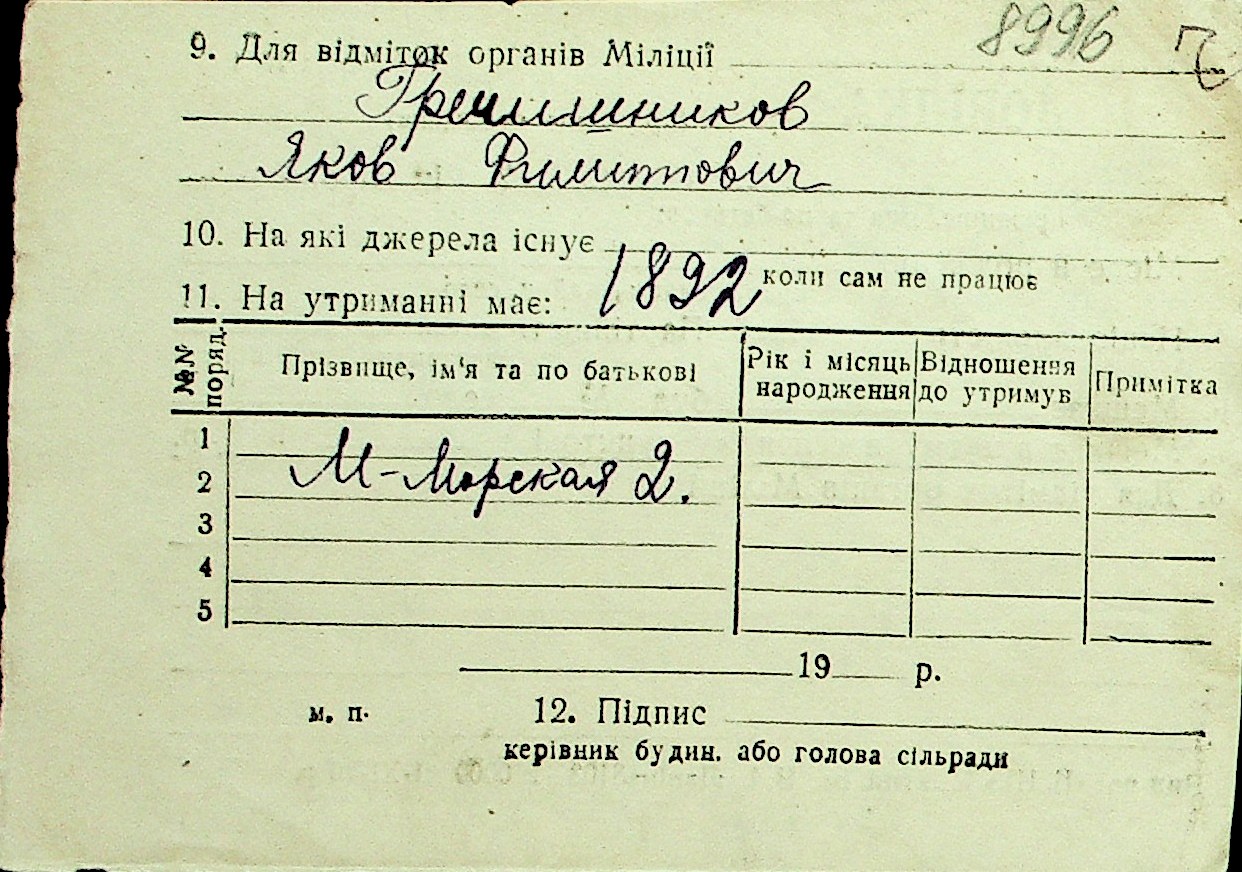 8996
9. Для відміток органів Міліції
Гречишников
Яков Филиппович
10. На які джерела існує
1892 коли сам не працює
11. На утриманні має:
№№ поряд. Прізвище, ім‘я та по батькові Рік і місяць народження Відношення до утримув Примітка
1
М-Морская 2.
2
3
4
5
19 р.
м. п. 12. Підпис
керівник будин. або голова сільради